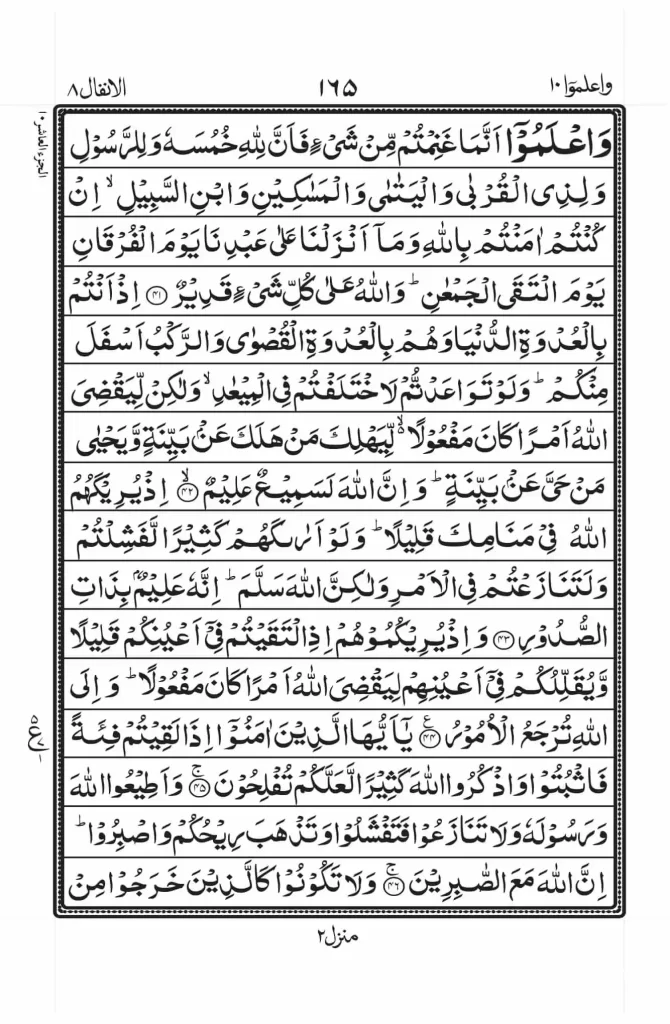 واعلموٓا ١٠ ١٦٥ الانفال ٨
الجزء العاشر ١٠
وَاعْلَمُوْٓا اَنَّمَا غَنِمْتُمْ مِّنْ شَیْءٍ فَاَنَّ لِلّٰهِ خُمُسَهٗ وَلِلرَّسُوْلِ
وَلِذِی الْقُرْبٰی وَالْیَتٰمٰی وَالْمَسٰكِیْنِ وَابْنِ السَّبِیْلِ ۙ اِنْ
كُنْتُمْ اٰمَنْتُمْ بِاللّٰهِ وَمَاۤ اَنْزَلْنَا عَلٰی عَبْدِنَا یَوْمَ الْفُرْقَانِ
یَوْمَ الْتَقَی الْجَمْعٰنِ ؕ وَاللّٰهُ عَلٰی كُلِّ شَیْءٍ قَدِیْرٌ ﴿۴۱﴾ اِذْ اَنْتُمْ
بِالْعُدْوَةِ الدُّنْیَا وَهُمْ بِالْعُدْوَةِ الْقُصْوٰی وَالرَّكْبُ اَسْفَلَ
مِنْكُمْ ؕ وَلَوْ تَوَاعَدْتُّمْ لَاخْتَلَفْتُمْ فِی الْمِیْعٰدِ ۙ وَلٰكِنْ لِّیَقْضِیَ
اللّٰهُ اَمْرًا كَانَ مَفْعُوْلًا ۙ۬ لِّیَهْلِكَ مَنْ هَلَكَ عَنْۢ بَیِّنَةٍ وَّیَحْیٰی
مَنْ حَیَّ عَنْۢ بَیِّنَةٍ ؕ وَاِنَّ اللّٰهَ لَسَمِیْعٌ عَلِیْمٌ ﴿ۙ۴۲﴾ اِذْ یُرِیْكَهُمُ
اللّٰهُ فِیْ مَنَامِكَ قَلِیْلًا ؕ وَلَوْ اَرٰىكَهُمْ كَثِیْرًا لَّفَشِلْتُمْ
وَلَتَنَازَعْتُمْ فِی الْاَمْرِ وَلٰكِنَّ اللّٰهَ سَلَّمَ ؕ اِنَّهٗ عَلِیْمٌۢ بِذَاتِ
الصُّدُوْرِ ﴿۴۳﴾ وَاِذْ یُرِیْكُمُوْهُمْ اِذِ الْتَقَیْتُمْ فِیْۤ اَعْیُنِكُمْ قَلِیْلًا
وَّیُقَلِّلُكُمْ فِیْۤ اَعْیُنِهِمْ لِیَقْضِیَ اللّٰهُ اَمْرًا كَانَ مَفْعُوْلًا ؕ وَاِلَی
اللّٰهِ تُرْجَعُ الْاُمُوْرُ ﴿۴۴﴾ۧ یٰۤاَیُّهَا الَّذِیْنَ اٰمَنُوْۤا اِذَا لَقِیْتُمْ فِئَةً
فَاثْبُتُوْا وَاذْكُرُوا اللّٰهَ كَثِیْرًا لَّعَلَّكُمْ تُفْلِحُوْنَ ﴿ۚ۴۵﴾ وَاَطِیْعُوا اللّٰهَ
وَرَسُوْلَهٗ وَلَا تَنَازَعُوْا فَتَفْشَلُوْا وَتَذْهَبَ رِیْحُكُمْ وَاصْبِرُوْا ؕ
اِنَّ اللّٰهَ مَعَ الصّٰبِرِیْنَ ﴿ۚ۴۶﴾ وَلَا تَكُوْنُوْا كَالَّذِیْنَ خَرَجُوْا مِنْ
منزل ۲